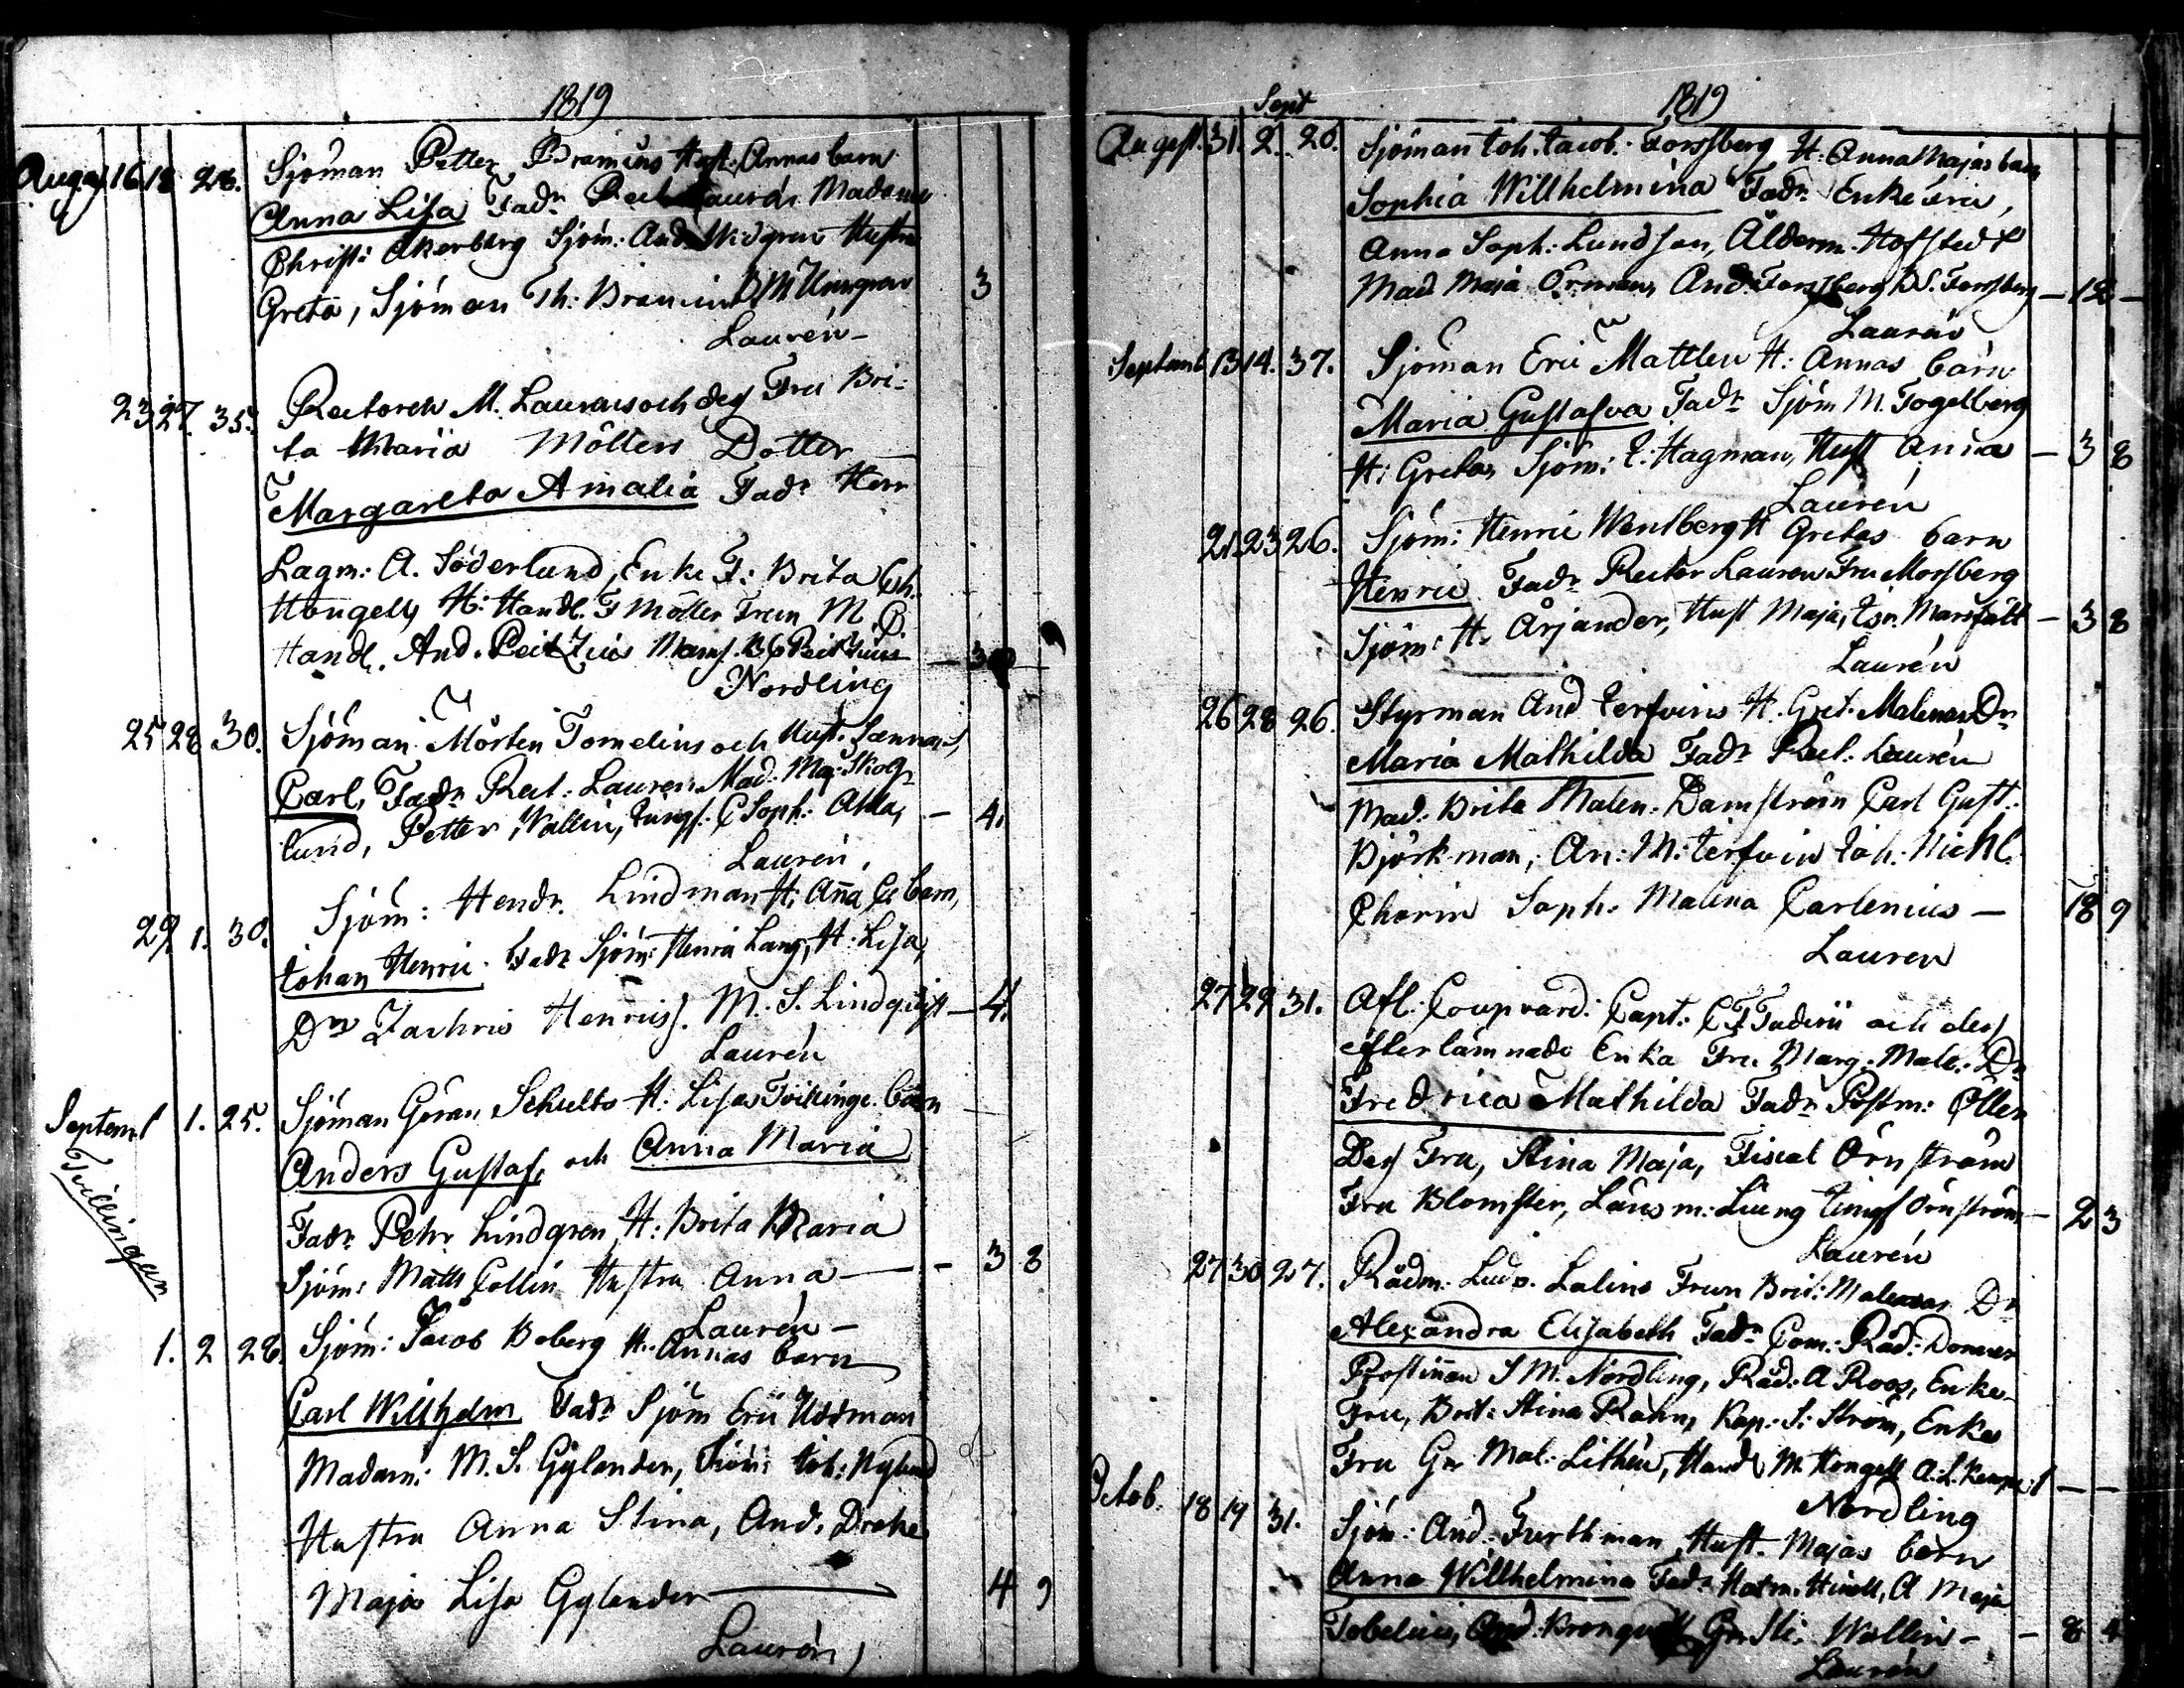 1819
Augus 16 18 28. Sjöman Petter Bramius Hust. Annas barn
Anna Lisa Fadr Rect Laurén Madame
Christ: Akerberg Sjöm: And. Widgren Hustru
Greta, Sjöman Th: Bramius B M 3
Laurén
23 27. 35. Rectoren M. Lauraeus och dess Fru Bri-
ta Maria Möllers Dotter
Margareta Amalia Fadr Herr
Lagm: A. Söderlund, Enke F: Brita Ch.
Hongell, H: Handl. F Möller Frun M. C.
Handl. And. Peitzius Mams.
Nordling
25 28 30. Sjöman Mårten Tornelius och Hust. Sannas
Carl, Fadr Rect: Lauren Mad. Maj: Skog-
lund, Petter Wallin, Jungf. C Soph: Ahla, 4.
Laurén.
29 1. 30. Sjöm: Hendr. Lindman H: Anna C: barn,
Johan Henric Fadr Sjöm: Henric Lang, H: Lisa,
Dn Zachris Henrics. M. S. Lindquist 4.
Laurén
Septem 1 1. 25. Sjöman Göran Schultz H: Lisas Tvillinge barn
Anders Gustaf, och Anna Maria
Tvillingar
Fadr Pehr Lindgren, H: Brita Maria
Sjöm: Matts Collin Hustru Anna 3 8
Laurén
1. 2 28. Sjöm: Jacob Boberg H. Annas barn
Carl Willhelm Fadr Sjöm Eric Uddman
Madam: M. S. Gylander, Sjöm: Joh: Nylund
Hustru Anna Stina, And. Drake
Maja Lisa Gylander 4 9
Laurén
1819
Sept
August. 31. 2. 20. Sjöman Joh. Jacob. Forssberg H: Anna Majas barn
Sophia Willhelmina Fadr Enke Fru,
Anna Soph: Lundson, Ålderm. Hofstedt
Mad. Maja Örman, And. Forssberg B S. Forssberg 12
Laurén
Septemb 13 14. 37. Sjöman Eric Mattlen H: Annas barn
Maria Gustafva Fadr Sjöm M. Fogelberg
H: Greta, Sjöm: E. Hagman, Hust Anna 3 8
Laurén
21. 23 26. Sjöm: Henric Wentberg H Gretas barn
Henric Fadr Rector Lauren Fru Mossberg
Sjöm: H. Arjander, Hust Maja, 3 8
Laurén
26 28 26. Styrman And Jerfvins H. Gret. Malenas Dr
Maria Mathilda Fadr Rect: Laurén
Mad: Brita Malen. Damström Carl Gust:
Björkman, An: M: Jerfvin Joh: Michl.
Chorin Soph. Malena Carlenius 18 9
Lauren
27 29 31. Afl. Coopvard: Capt: C F Faderii och dess
efterlämnade Enka Fru Marg. Male: Dr
Fredrica Mathilda Fadr Postm: Ollen
Dess Fru, Stina Maja, Fiscal Örnström
Fru Blomster, Länsm: Liung Jungf Örnström 2 3
Laurén
27 30 27. Rådm. Ludv. Lalins Frun Brit: Malenas Dr
Alexandra Elisabeth Fadr Com: Råd: Donner
Prostinnan S M. Nordling, Råd: A Roos, Enke
Fru, Brit: Stina Rahn, Kap: S: Ström, Enke
Fru Gr Mal: Lithén, Handl M. Hongell A. L.
Nordling
Octob. 18 19 31. Sjöm: And: Furthman, Hust. Majas barn
Anna Willhelmina Fadr A Maja
Tobelius, And: Kronqvist Gr. Sti. Wallin 8 4
Laurén